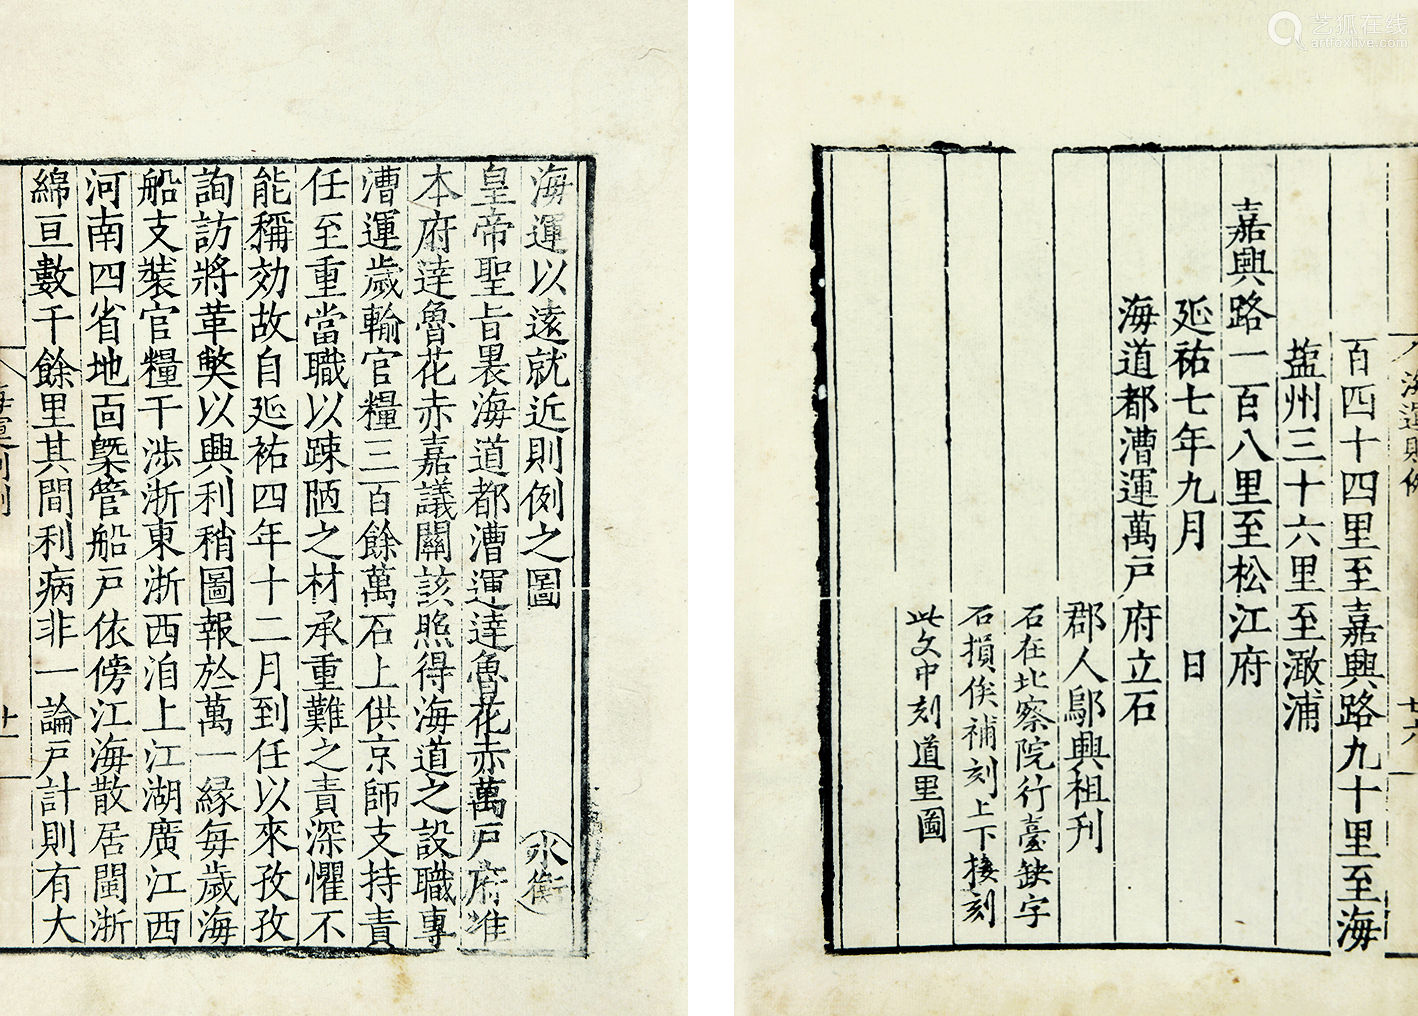 海運以遠就近則例之圖 水衡
皇帝聖旨裏海道都漕運達魯花赤萬户府准
本府達魯花赤嘉議關該照得海道之設職專
漕運歲輸官糧三百餘萬石上供京師支持責
任至重當職以踈陋之材承重難之責深懼不
能稱効故自延祐四年十二月到任以來孜孜
詢訪將革獘以興利稍圖報於萬一緣每歲海
船支裝官糧干涉浙東浙西洎上江湖廣江西
河南四省地面槩管船戸依傍江海散居閩浙
綿亘數千餘里其間利病非一論戸計則有大
海運則例
十一
海運則例
廿六
百四十四里至嘉興路九十里至海
盐州三十六里至澉浦
嘉興路一百八里至松江府
延祐七年九月 日
海道都漕運萬戸府立石
郡人鄔興祖刋
石在北察院行臺缺字
石損俟補刻上下接刻
此文中刻道里圖
艺狐在线
artfoxlive.com